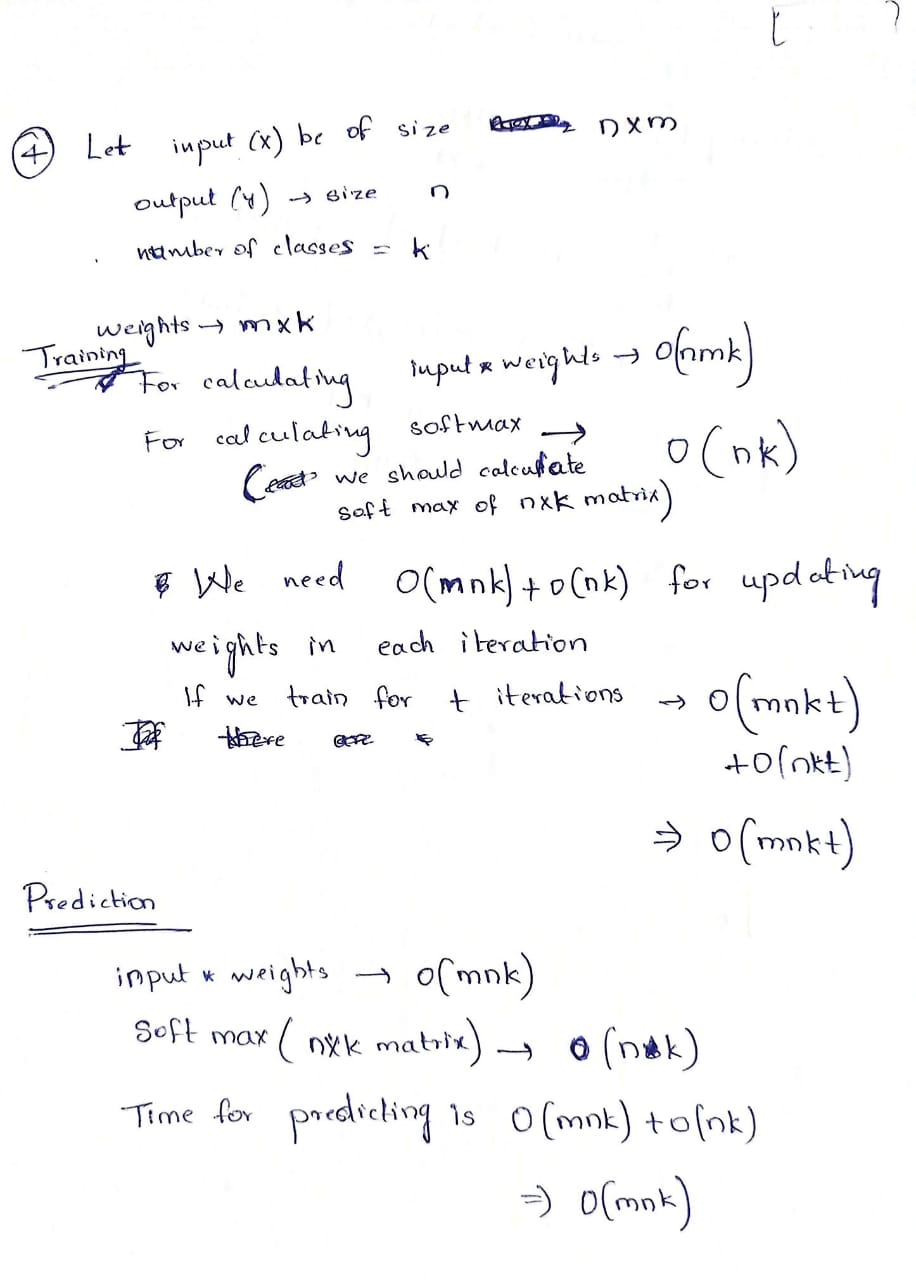 [ ?
④ Let input (x) be of size n×m
output (y) → size n
number of classes = k
weights → m×k
Training
For calculating input * weights → O(nmk)
For calculating softmax → O(nk)
( we should calculate
soft max of n×k matrix)
We need O(mnk) + O(nk) for updating
weights in each iteration
If we train for t iterations → O(mnkt)
+O(nkt)
⇒ O(mnkt)
Prediction
input * weights → O(mnk)
Soft max ( n×k matrix) → O(nk)
Time for predicting is O(mnk) + O(nk)
⇒ O(mnk)